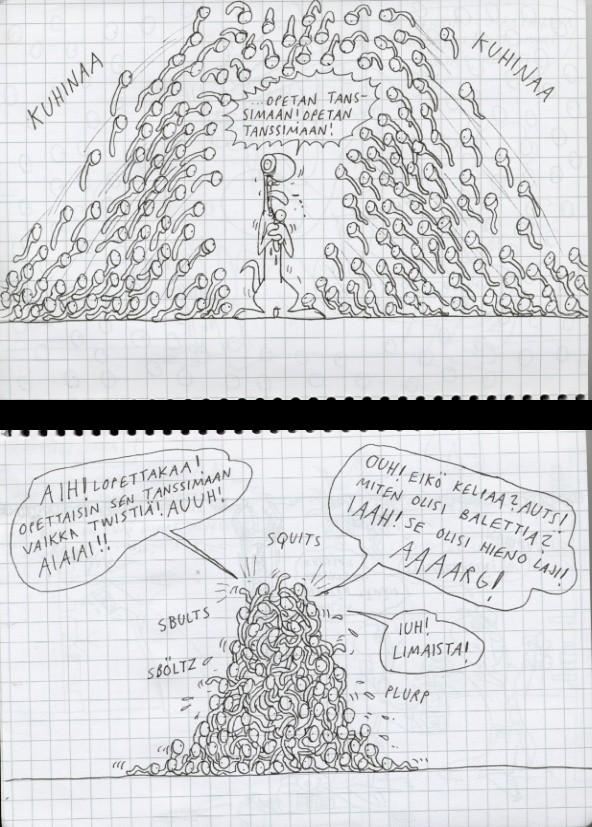 KUHINAA
KUHINAA
...OPETAN TANS-
SIMAAN! OPETAN
TANSSIMAAN!
AIH! LOPETTAKAA!
OPETTAISIN SEN TANSSIMAAN
VAIKKA TWISTIÄ! AUUH!
AIAIAI!!
OUH! EIKÖ KELPAA? AUTS!
MITEN OLISI BALETTIA?
IAAH! SE OLISI HIENO LAJI!
AAAARG!
SQUITS
SBULTS
IUH!
LIMAISTA!
SBÖLTZ
PLURP